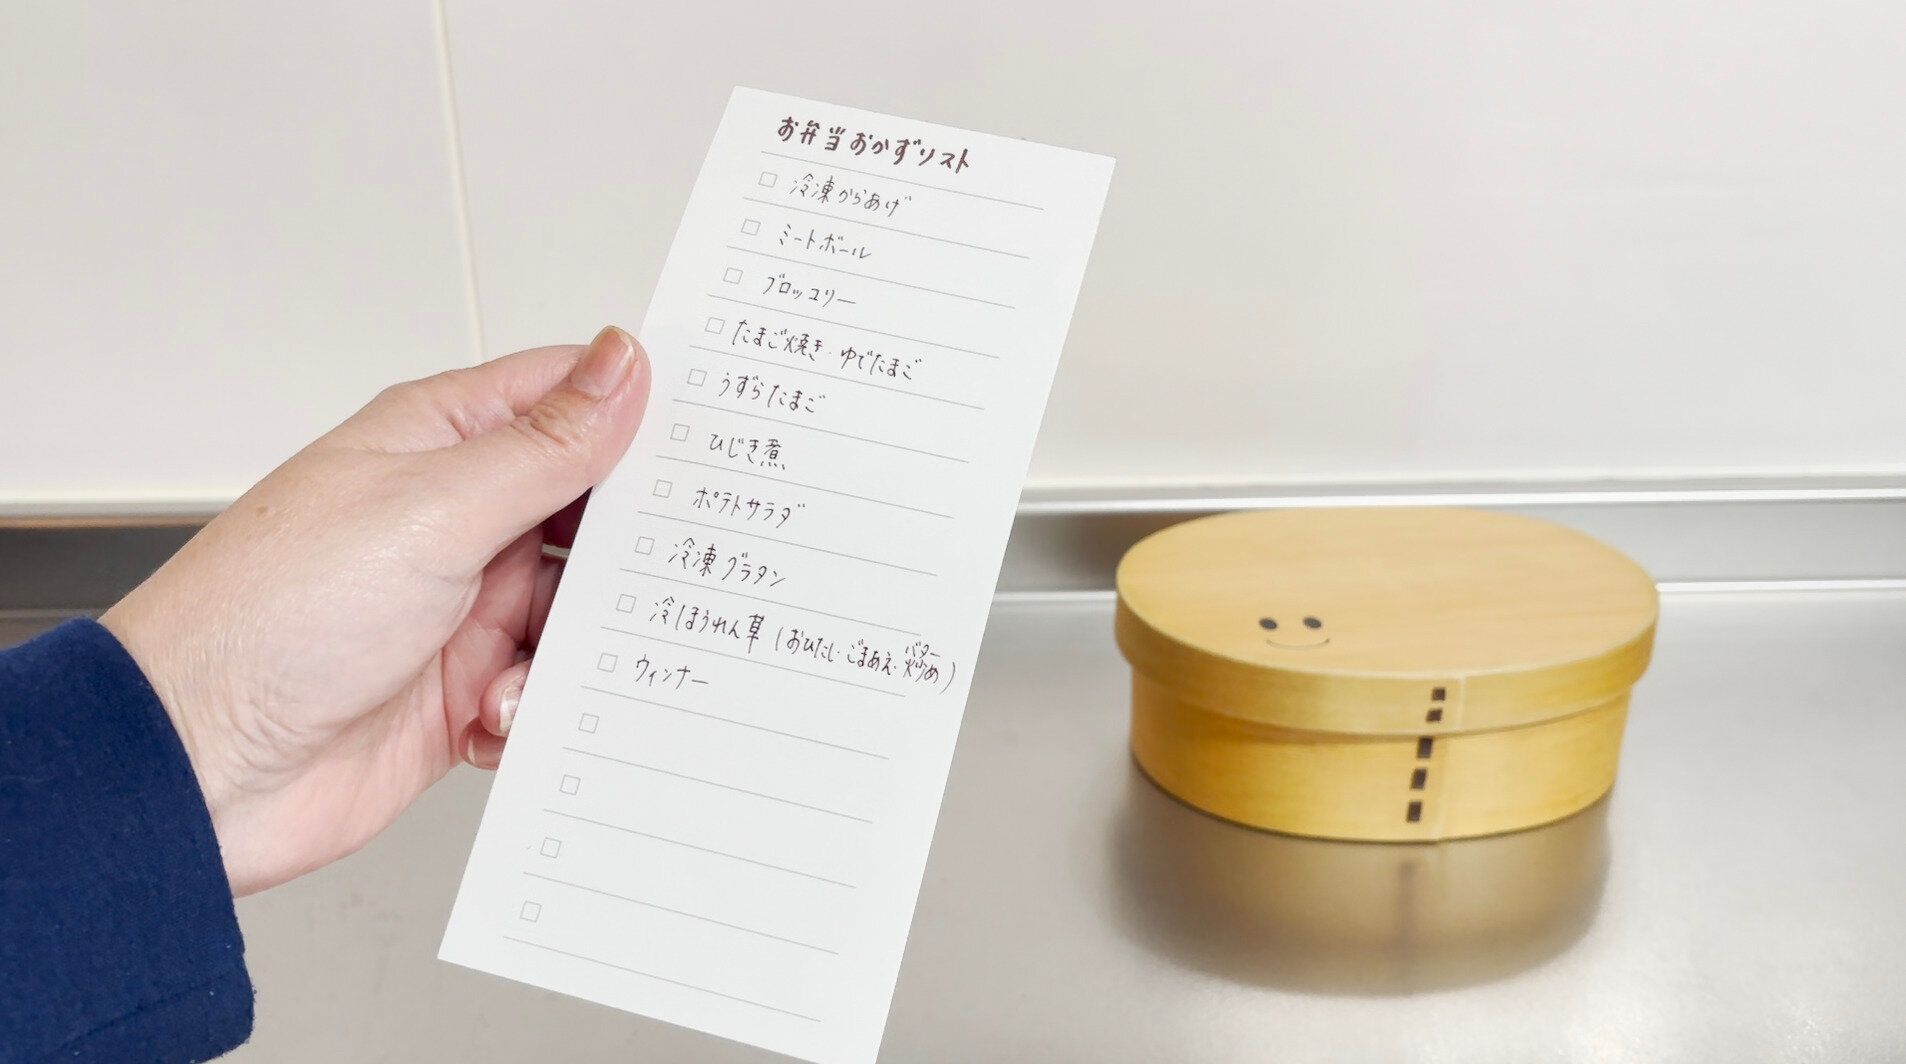 お弁当おかずリスト
冷凍からあげ
ミートボール
ブロッコリー
たまご焼き・ゆでたまご
うずらたまご
ひじき煮
ポテトサラダ
冷凍グラタン
冷ほうれん草(おひたし・ごまあえ・バター炒め)
ウィンナー